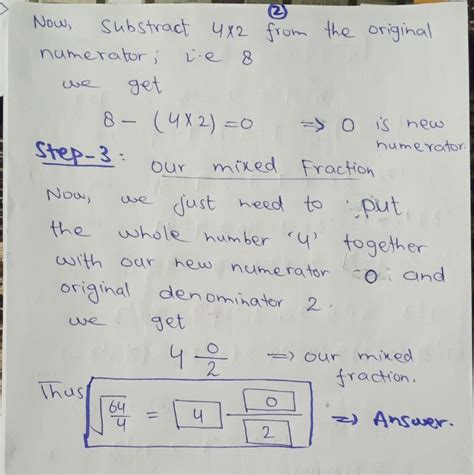 ②
Now, substract 4x2 from the original
numerator; i.e 8
we get
8 - (4x2) = 0 => 0 is new
numerator.
Step-3:
our mixed Fraction
Now, we just need to put
the whole number '4' together
with our new numerator 0 and
original denominator 2.
we get
4 0/2 => our mixed
fraction.
Thus √64/4 = 4 0/2 => Answer.